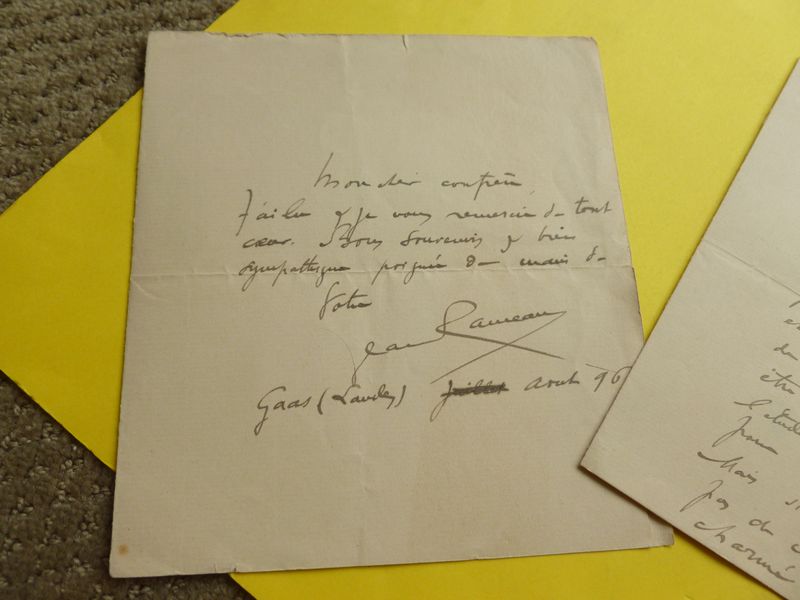 Mon cher confrère,
J'ai lu & je vous remercie de tout
cœur. Bons souvenirs & bien
sympathique poignée de main de
Votre
Jean Rameau
Gaas (Landes) Juillet Aout 96
du
être
l'étud
pour
Mais
pas du
charmé